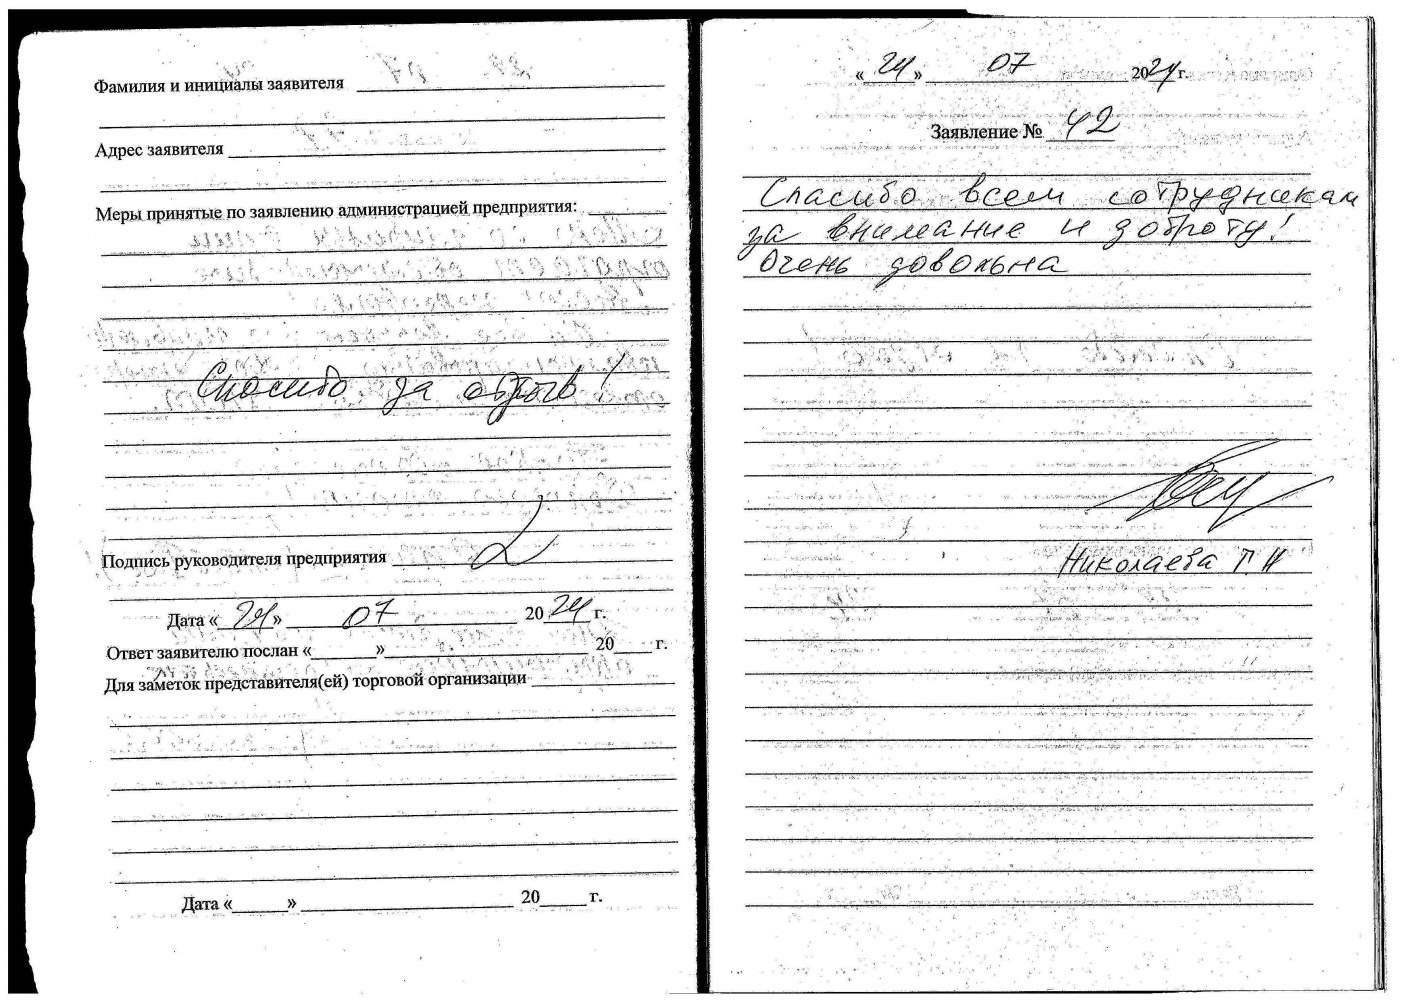 Фамилия и инициалы заявителя
Адрес заявителя
Меры принятые по заявлению администрацией предприятия:
Спасибо за отзыв!
Подпись руководителя предприятия
Дата «24» 07 2024 г.
Ответ заявителю послан «      » 20     г.
Для заметок представителя(ей) торговой организации
Дата «      » 20     г.
«24» 07 2024 г.
Заявление № 42
Спасибо всем сотрудникам
за внимание и доброту!
Очень довольна
Николаева Г. Н